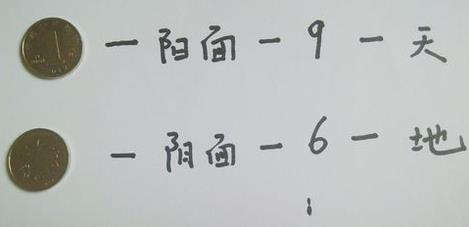 1 — 阳面 — 9 — 天
— 阴面 — 6 — 地